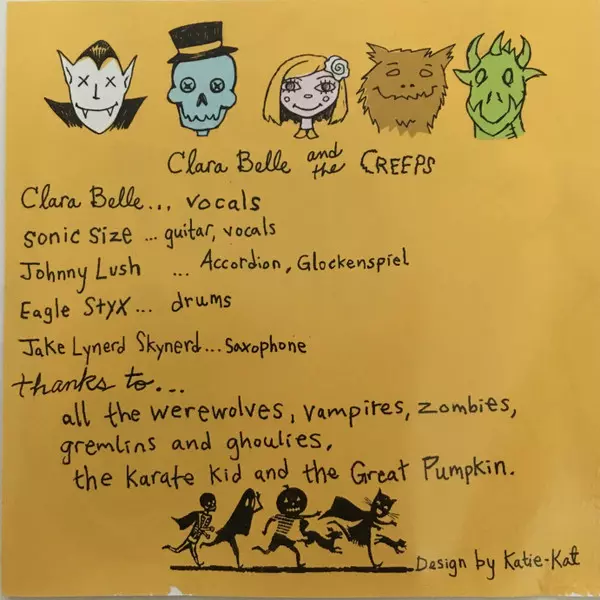 Clara Belle and the CREEPS
Clara Belle... vocals
Sonic Size ... guitar, vocals
Johnny Lush ... Accordion, Glockenspiel
Eagle Styx... drums
Jake Lynerd Skynerd... Saxophone
thanks to...
all the werewolves, vampires, zombies,
gremlins and ghoulies,
the Karate Kid and the Great Pumpkin.
Design by Katie-Kat